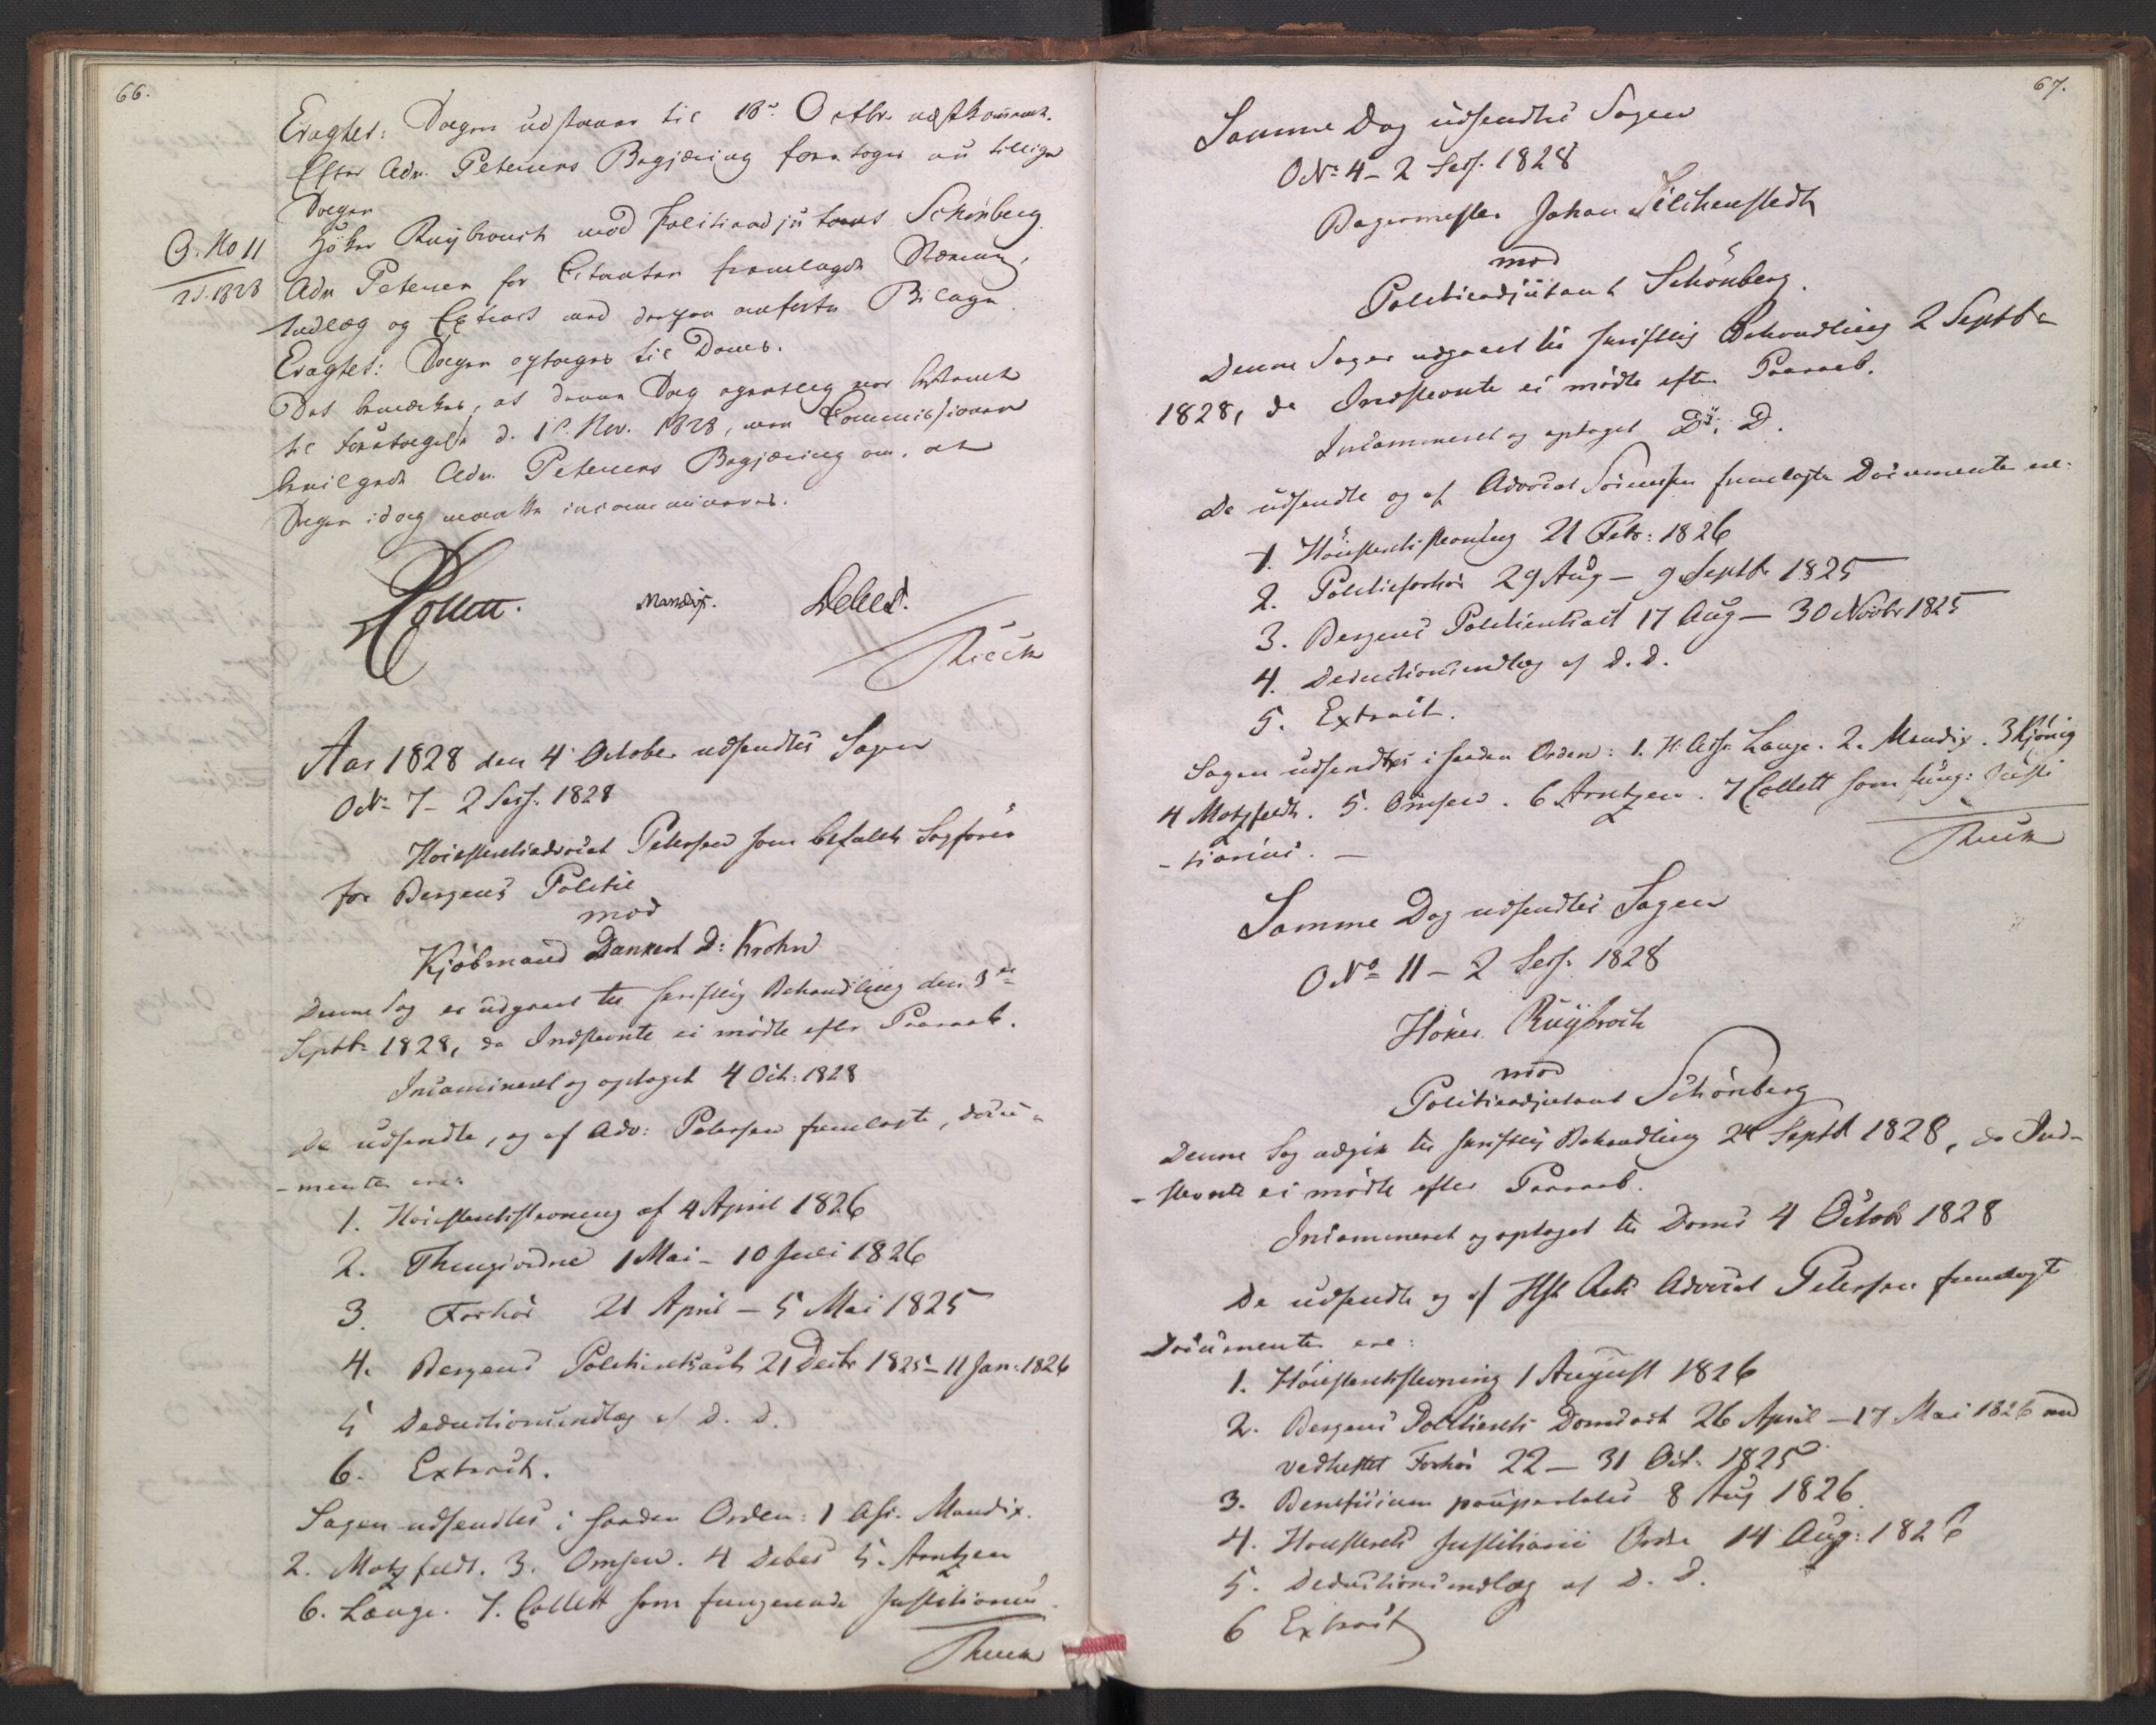 66.
Eragtet: Sagen udstaaer til 18de Octbr. næstkommende.
Efter Adv. Petersens Begjæring foretoges nu tillige
Sagen
O. No 11
2 S. 1828
Höker Ruÿbroch mod Politieadjutant Schönberg.
Adv Petersen for Citanten fremlagde Stævning,
Indlæg og Extract med derpaa anførte Bilage.
Eragtet: Sagen optages til Doms.
Det bemærkes, at denne Sag egentlig var bestemt
til Foretagelse d. 1ste Nov. 1828, men Commissionen
bevilgede Adv. Petersens Begjæring om, at
Sagen idag maatte incamineres.
Collett. Mandix. Debes.
Rieck
Aar 1828 den 4 October udsendtes Sagen
O No 7 - 2 Sess. 1828
Höiesteretsadvocat Petersen som befalet Sagförer
for Bergens Politie
mod
Kjöbmand Dankert D: Krohn
Denne Sag er udgaaet til skriftlig Behandling den 3de
Septbr 1828, da Indstevnte ei mödte efter Paaraab.
Incamineret og optaget 4 Oct: 1828
De udsendte, og af Adv: Petersen fremlagte, Docu-
-menter ere:
1. Höiesteretsstevning af 4 April 1826
2. Thingsvidne 1 Mai - 10 Juli 1826
3. Forhör 21 April - 5 Mai 1825
4. Bergens Politieretsact 21 Decbr 1825 - 11 Jan: 1826
5 Deductionsindlæg af D. D.
6. Extract.
Sagen udsendtes i saadan Orden: 1 Ass. Mandix.
2. Motzfeldt. 3. Omsen. 4 Debes 5. Arntzen
6. Lange. 7. Collett som fungerende Justitiarius.
67.
Samme Dag udsendtes Sagen
O No 4 - 2 Sess. 1828
Bagermester Johan Silchenstedt
mod
Politieadjutant Schönberg.
Denne Sag er udgaaet til skriftlig Behandling 2 Septbr
1828, da Indstevnte ei mödte efter Paaraab.
Incamineret og optaget Ds. D.
De udsendte og af Advocat Sörensen fremlagte Documenter ere:
1. Höiesteretsstevning 21 Febr: 1826
2. Politieforhör 29 Aug - 9 Septbr 1825
3. Bergens Politieretsact 17 Aug - 30 Novbr 1825
4. Deductionsindlæg af D. D.
5. Extract.
Sagen udsendtes i saadan Orden: 1. H. Ass. Lange. 2. Mandix. 3 Kjönig
4 Motzfeldt. 5. Omsen. 6 Arntzen. 7 Collett som fung: Justi
-tiarius. -
Samme Dag udsendtes Sagen
O No 11 - 2 Sess. 1828
Höker Ruÿbroch
mod
Politieadjutant Schönberg
Denne Sag udgik til skriftlig Behandling 2 Septbr 1828, da Ind-
-stevnte ei mödte efter Paaraab.
Incamineret og optaget til Doms 4 Octob 1828
De udsendte og af Hst Rets Advocat Petersen fremlagte
Documenter ere:
1. Höiesteretsstevning 1 August 1826
2. Bergens Politierets Domsact 26 April - 17 Mai 1826 med
vedheftet Forhör 22 - 31 Oct. 1825
3. Beneficium paupertatis 8 Aug 1826.
4. Höiesterets Justitiarii Ordre 14 Aug: 1826
5. Deductionsindlæg af D. D.
6 Extract